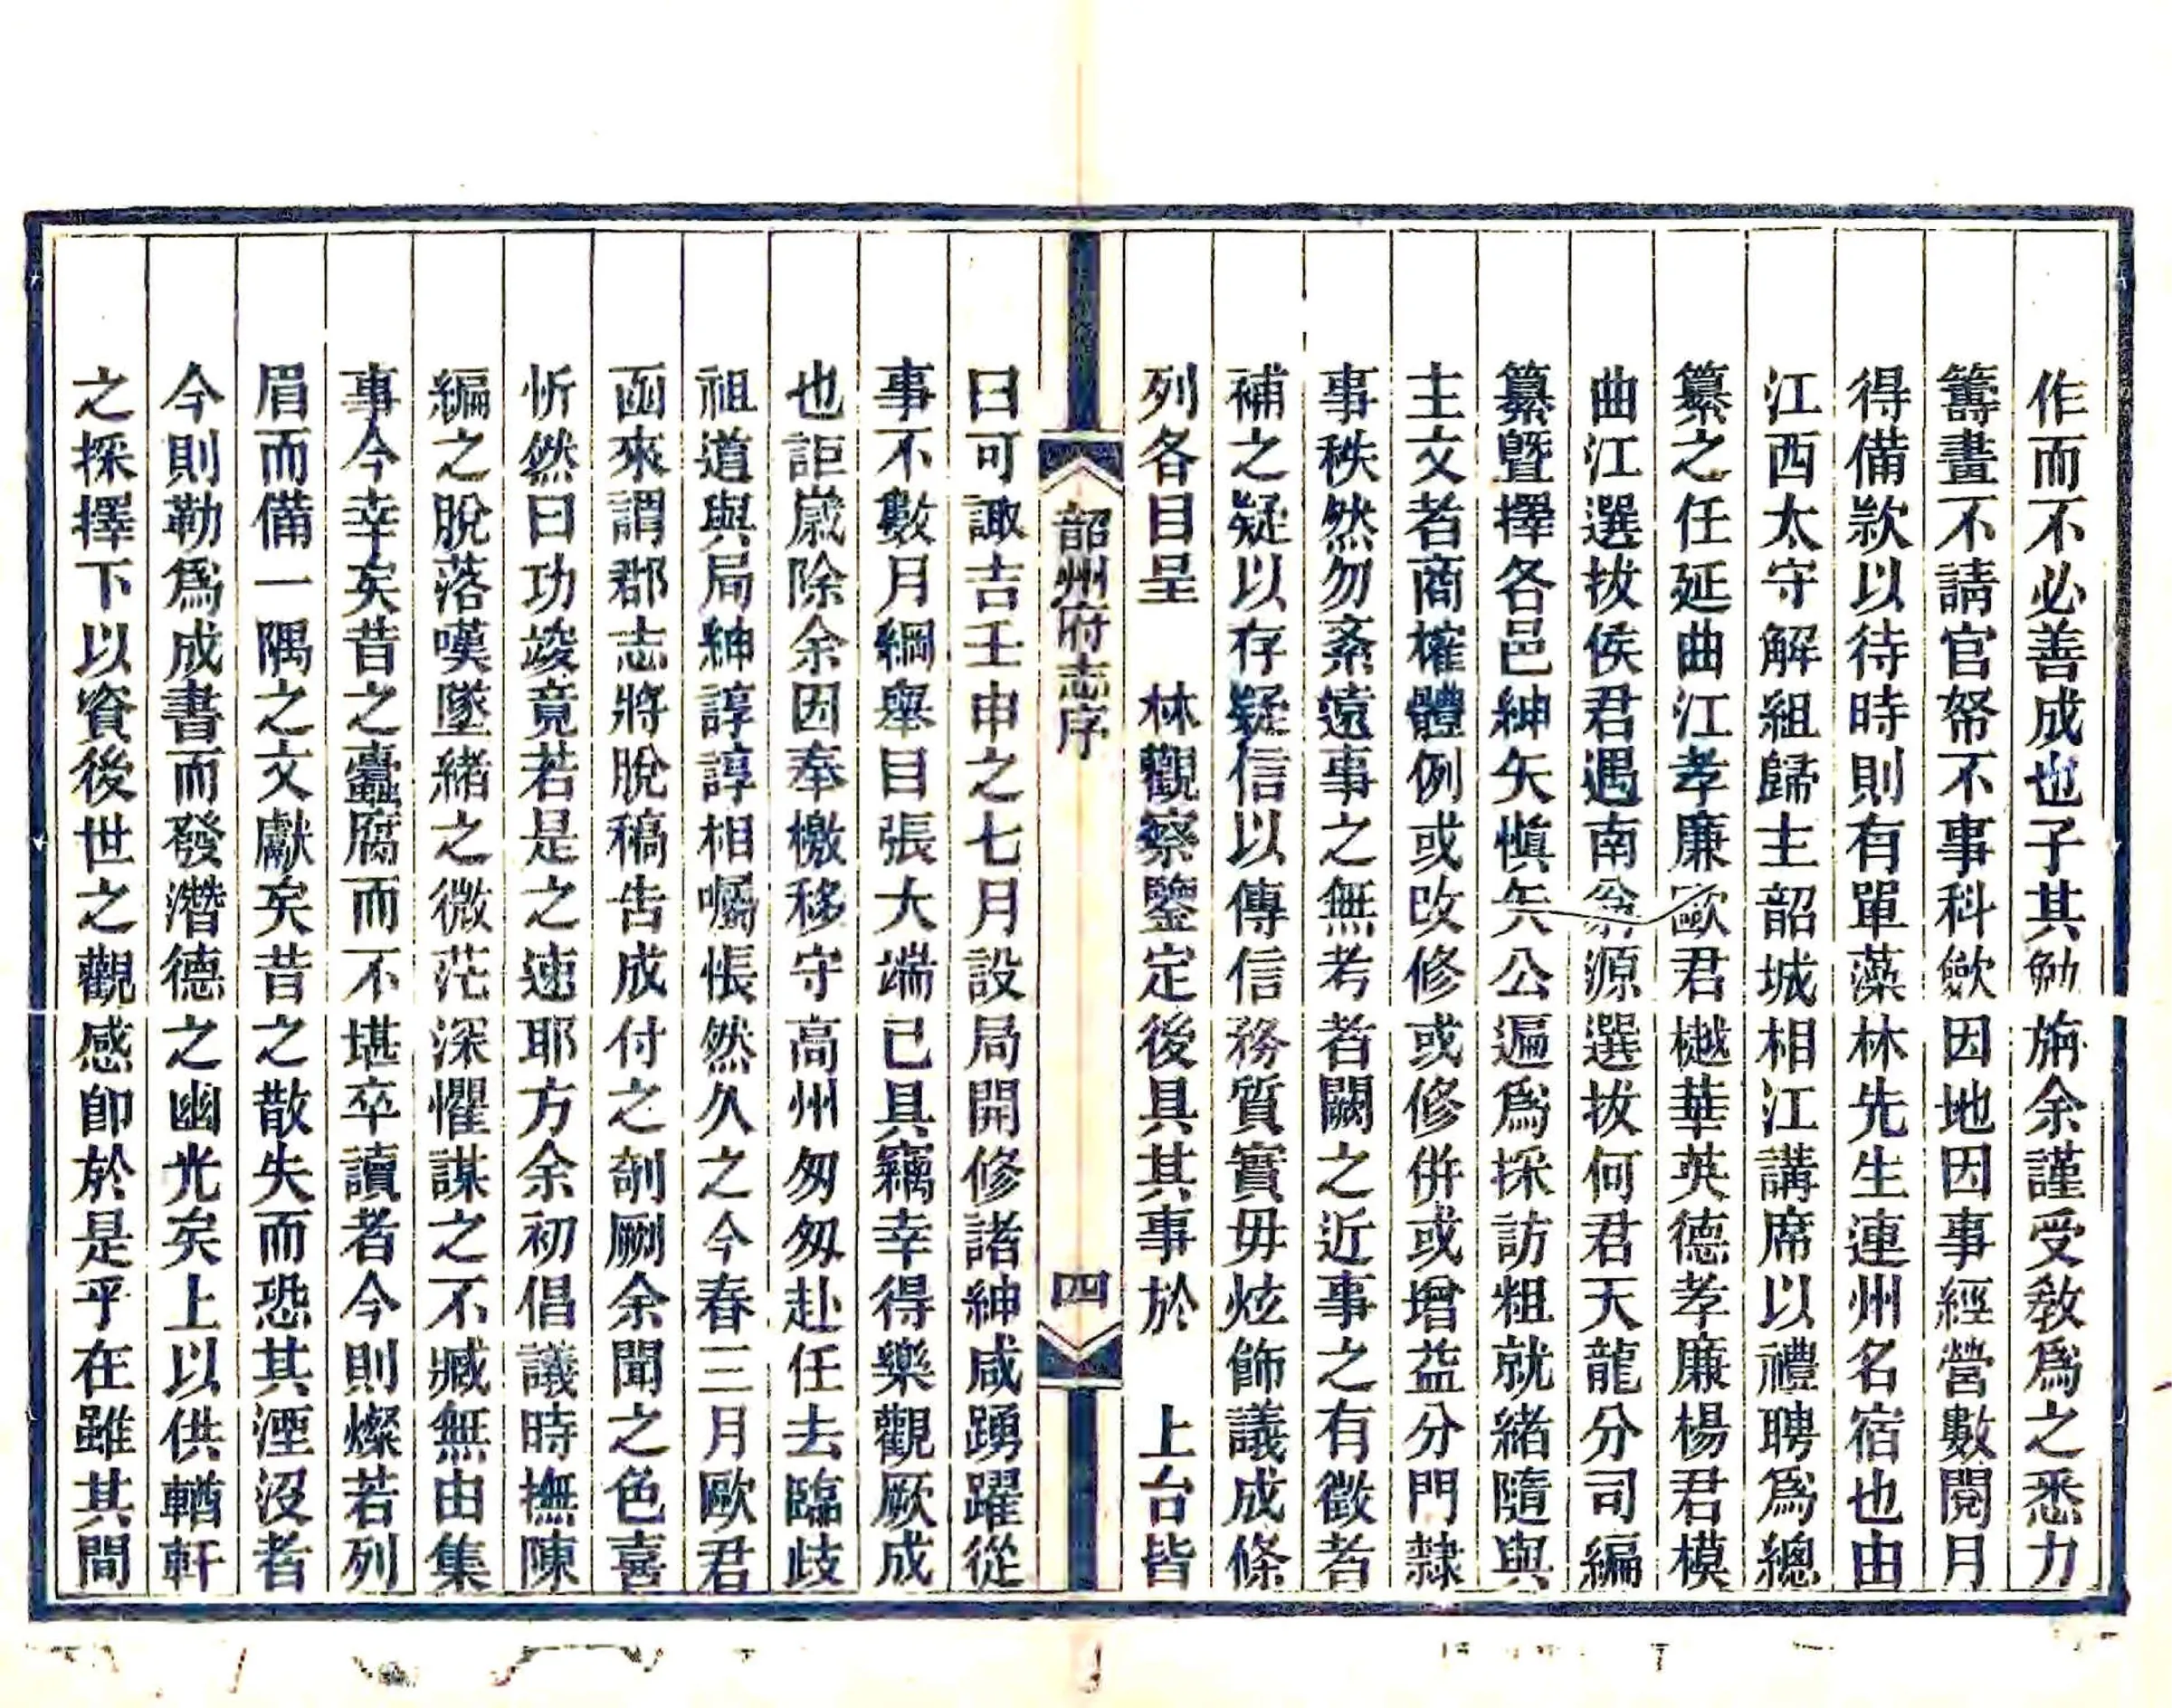 作而不必善成也子其勉旃余謹受教爲之悉力
籌畫不請官帑不事科歛因地因事經營數閱月
得備欵以待時則有單藻林先生連州名宿也由
江西太守解組歸主韶城相江講席以禮聘爲總
纂之任延曲江孝廉歐君樾華英德孝廉楊君模
曲江選拔侯君遇南翁源選拔何君天龍分司編
纂曁擇各邑紳矢愼矢公遍爲採訪粗就緒隨與
主文者商榷體例或改修或修併或增益分門隸
事秩然勿紊遠事之無考者闕之近事之有徵者
補之疑以存疑信以傳信務質實毋炫飾議成條
列各目呈　林觀察鑒定後具其事於　上台皆
韶州府志序
四
曰可諏吉壬申之七月設局開修諸紳咸踴躍從
事不數月綱舉目張大端已具竊幸得樂觀厥成
也詎歲除余因奉檄移守高州匆匆赴任去臨歧
祖道與局紳諄諄相囑悵然久之今春三月歐君
函來謂郡志將脫稿告成付之剞劂余聞之色喜
忻然曰功竣竟若是之速耶方余初倡議時撫陳
編之脫落嘆墜緒之微茫深懼謀之不臧無由集
事今幸矣昔之蠹腐而不堪卒讀者今則燦若列
眉而備一隅之文獻矣昔之散失而恐其湮沒者
今則勒爲成書而發潛德之幽光矣上以供輶軒
之採擇下以資後世之觀感卽於是乎在雖其間